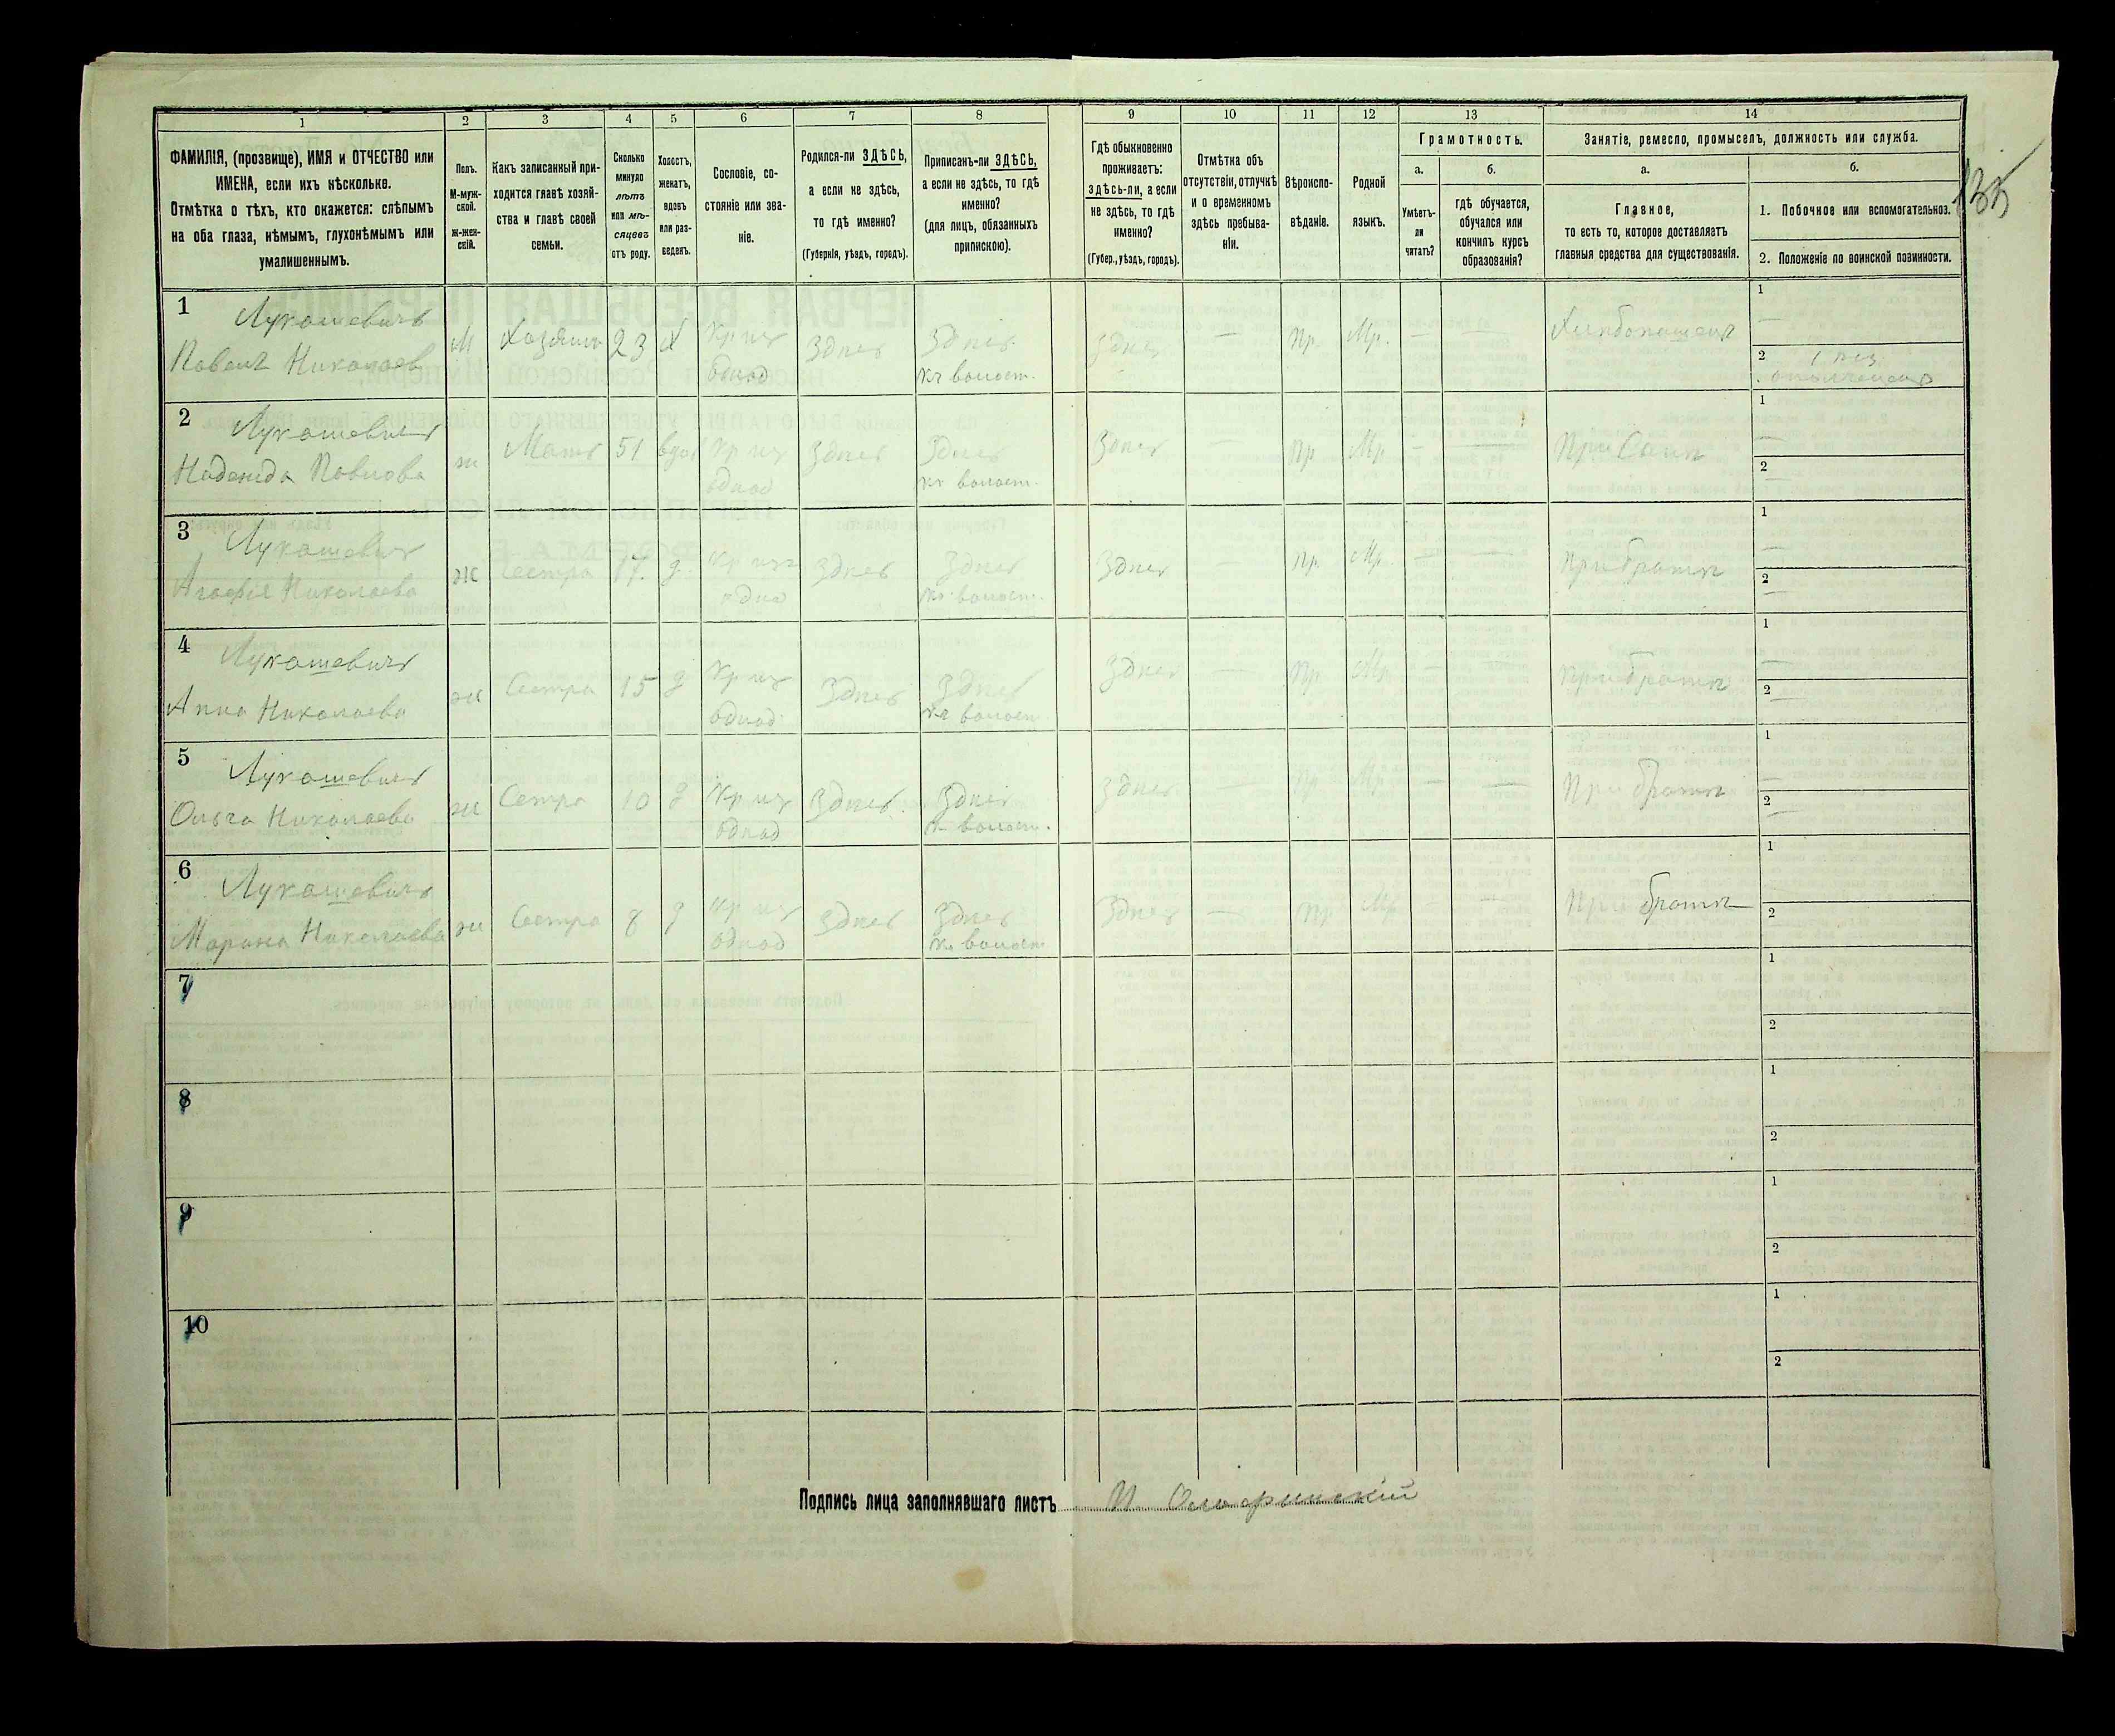 135
1 2 3 4 5 6 7 8 9 10 11 12 13 14
ФАМИЛІЯ, (прозвище), ИМЯ и ОТЧЕСТВО или ИМЕНА, если ихъ нѣсколько.
Отмѣтка о тѣхъ, кто окажется: слѣпымъ на оба глаза, нѣмымъ, глухонѣмымъ или умалишеннымъ.
Полъ.
М-муж-
ской.
ж-жен-
скій.
Какъ записанный при-
ходится главѣ хозяй-
ства и главѣ своей
семьи.
Сколько
минуло
лѣтъ
или мѣ-
сяцевъ
отъ роду.
Холостъ,
женатъ,
вдовъ
или раз-
веденъ.
Сословіе, со-
стояніе или зва-
ніе.
Родился-ли ЗДѢСЬ,
а если не здѣсь,
то гдѣ именно?
(Губернія, уѣздъ, городъ).
Приписанъ-ли ЗДѢСЬ,
а если не здѣсь, то гдѣ
именно?
(для лицъ, обязанныхъ
припискою).
Гдѣ обыкновенно
проживаетъ:
здѣсь-ли, а если
не здѣсь, то гдѣ
именно?
(Губер., уѣздъ, городъ).
Отмѣтка объ
отсутствіи, отлучкѣ
и о временномъ
здѣсь пребыва-
ніи.
Вѣроиспо-
вѣданіе.
Родной
языкъ.
Грамотность.
а.
Умѣетъ-
ли
читать?
б.
гдѣ обучается,
обучался или
кончилъ курсъ
образованія?
Занятіе, ремесло, промыселъ, должность или служба.
а.
Главное,
то есть то, которое доставляетъ
главныя средства для существованія.
б.
1. Побочное или вспомогательное.
2. Положеніе по воинской повинности.
1 Лукашевичъ
Павелъ Николаев
М Хозяинъ 23 Х Кр из
однод
Здѣсь Здѣсь
къ волост.
Здѣсь — Пр. Мр. — — Хлѣбопашецъ
1 —
2
2 Лукашевичъ
Надежда Павлова
ж Мать 51 вдов Кр из
однод
Здѣсь Здѣсь
къ волост.
Здѣсь — Пр Мр — — При Сынѣ
1 —
2 —
3 Лукашевичъ
Агафія Николаева
ж Сестра 17. д. Кр из
однод
Здѣсь Здѣсь
къ волост.
Здѣсь — Пр. Мр. — — При братѣ
1 —
2 —
4 Лукашевичъ
Анна Николаева
ж Сестра 15 д Кр из
однод
Здѣсь Здѣсь
къ волост
Здѣсь — Пр Мр — — При братѣ
1 —
2 —
5 Лукашевичъ
Ольга Николаева
ж Сестра 10 д Кр из
однод
Здѣсь Здѣсь
къ волост.
Здѣсь — Пр Мр — — При братѣ
1 —
2 —
6 Лукашевичъ
Марина Николаева
ж Сестра 8 д Кр из
однод
Здѣсь Здѣсь
къ волост
Здѣсь — Пр Мр — — При братѣ
1 —
2 —
7 1
2
8 1
2
9 1
2
10 1
2
Подпись лица заполнявшаго листъ И.